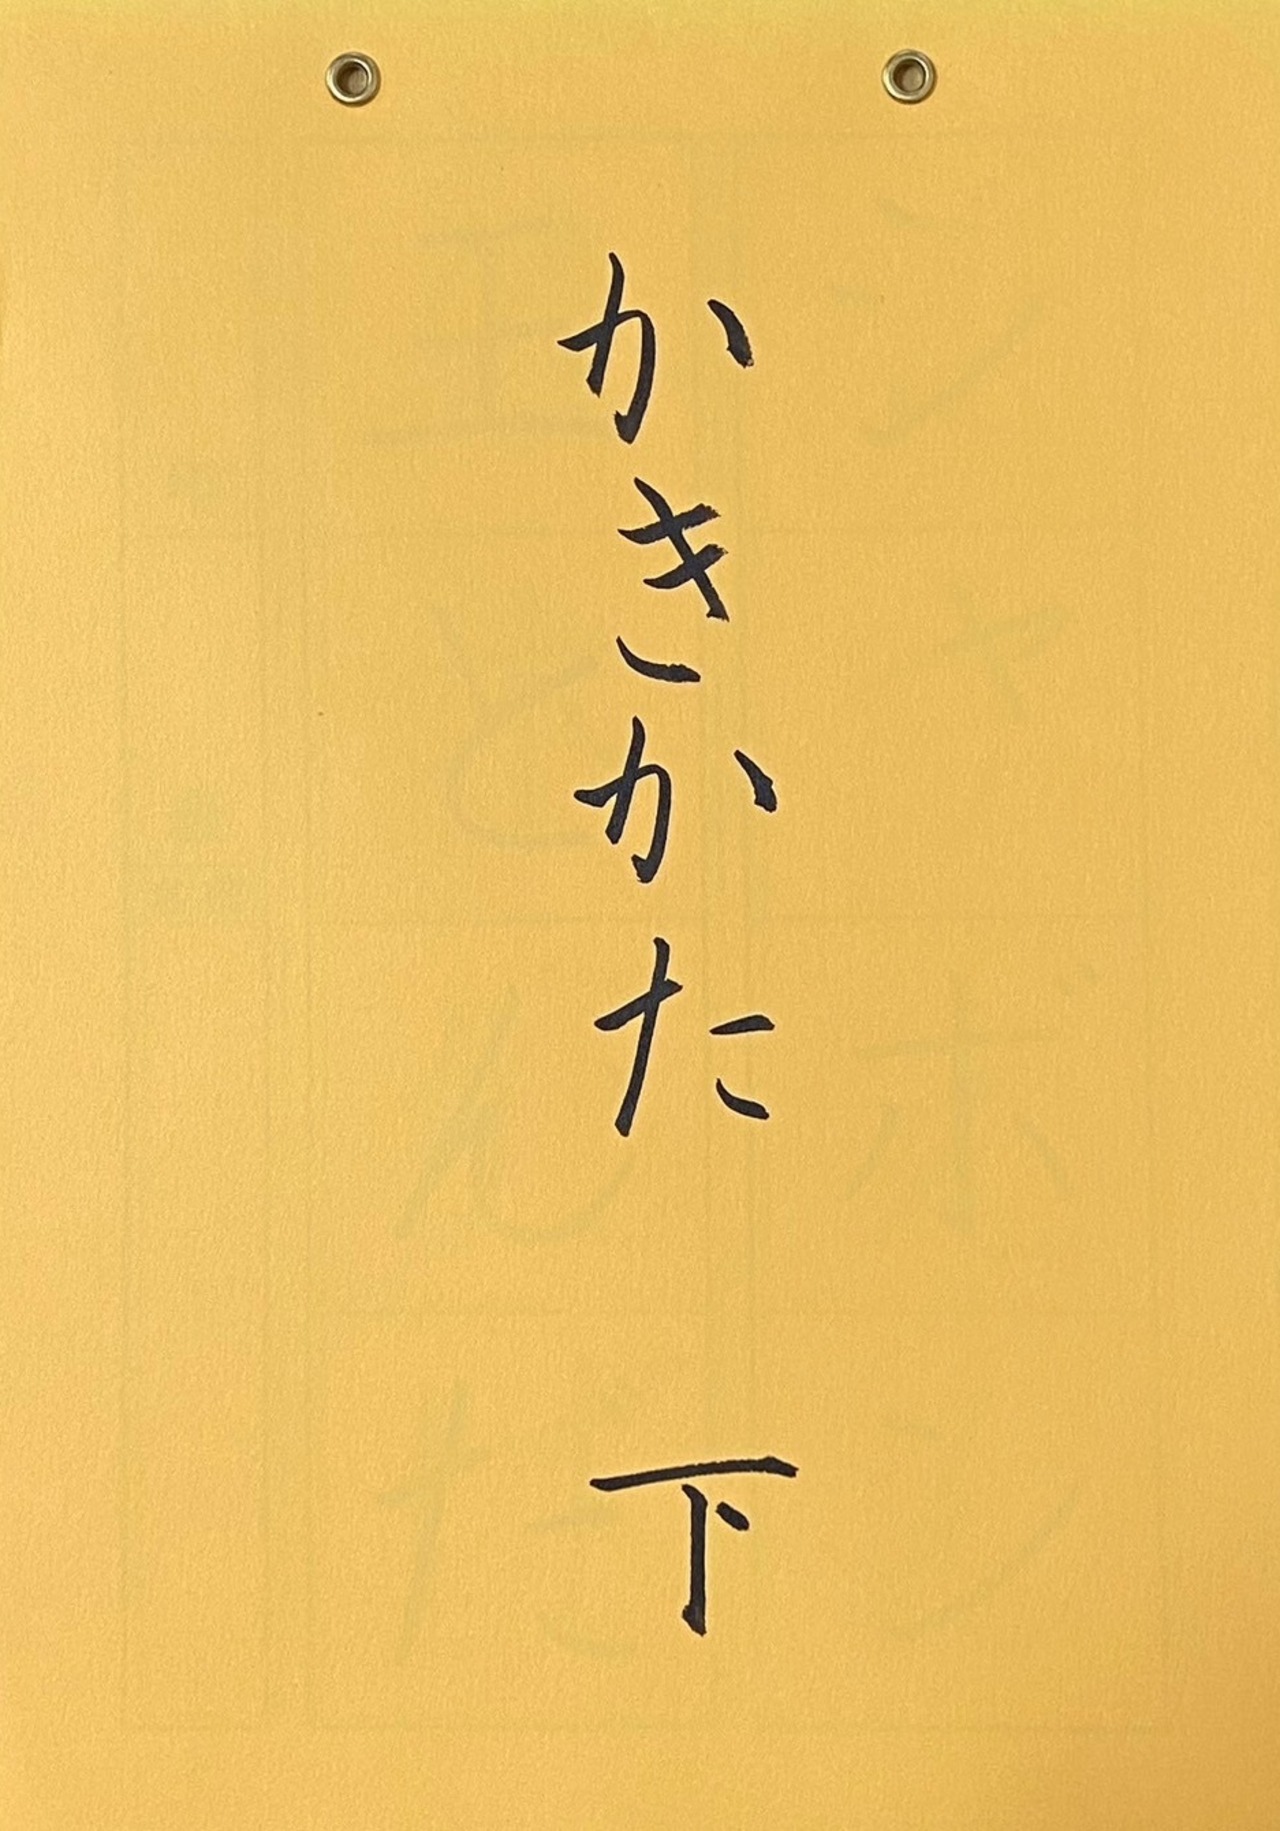 かきかた 下